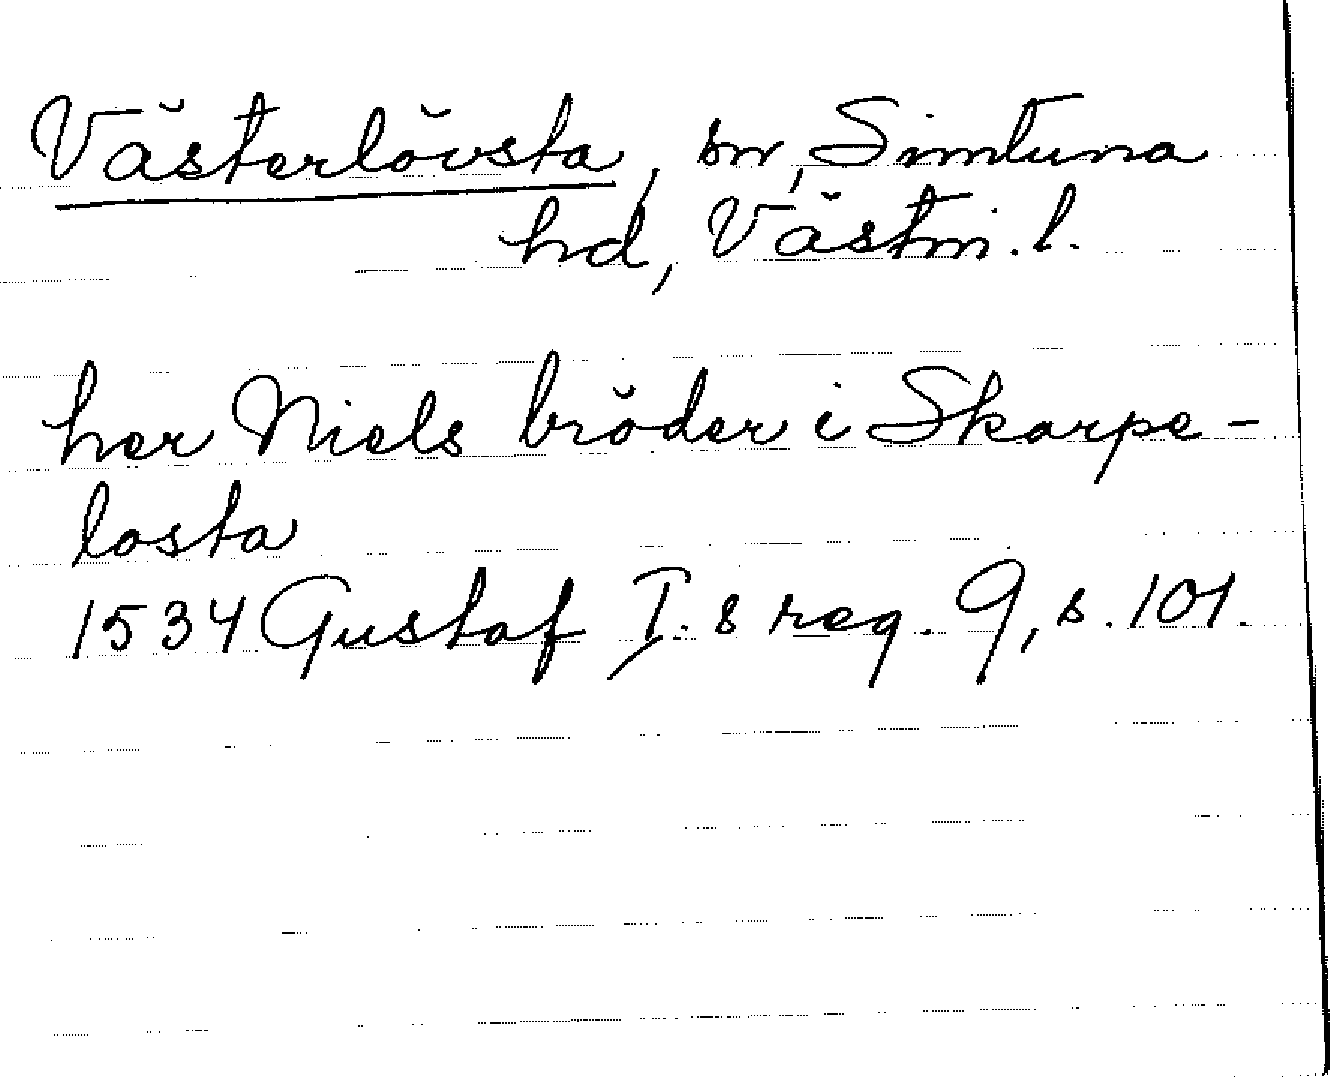 Västerlövsta, sn, Simtuna
hd, Västm. l.
her Niels bröder i Skarpe-
losta
1534 Gustaf I:s reg. 9, s. 101.